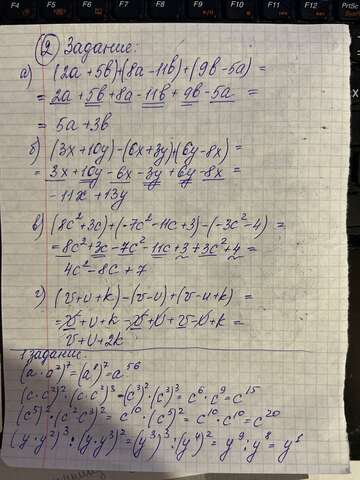 F4 F5 F6 F7 F8 F9 F10 F11 F12 PrtSc
② Задание:
а) (2a + 5b)+(8a - 11b)+(9b - 5a) =
= 2a + 5b + 8a - 11b + 9b - 5a =
= 5a + 3b
б) (3x + 10y) - (6x + 3y)+(6y - 8x) =
= 3x + 10y - 6x - 3y + 6y - 8x =
- 11x + 13y
в) (8c² + 3c) + (-7c² - 11c + 3) - (-3c² - 4) =
= 8c² + 3c - 7c² - 11c + 3 + 3c² + 4 =
4c² - 8c + 7
г) (v + u + k) - (v - u) + (v - u + k) =
= v + u + k - v + u + v - u + k =
v + u + 2k
1 задание.
(a · a⁷)⁷ = (a⁸)⁷ = a⁵⁶
(c · c²)² · (c · c²)³ = (c³)² · (c³)³ = c⁶ · c⁹ = c¹⁵
(c⁵)² · (c² c³)² = c¹⁰ · (c⁵)² = c¹⁰ · c¹⁰ = c²⁰
(y · y²)³ : (y · y³)² = (y³)³ : (y⁴)² = y⁹ : y⁸ = y¹